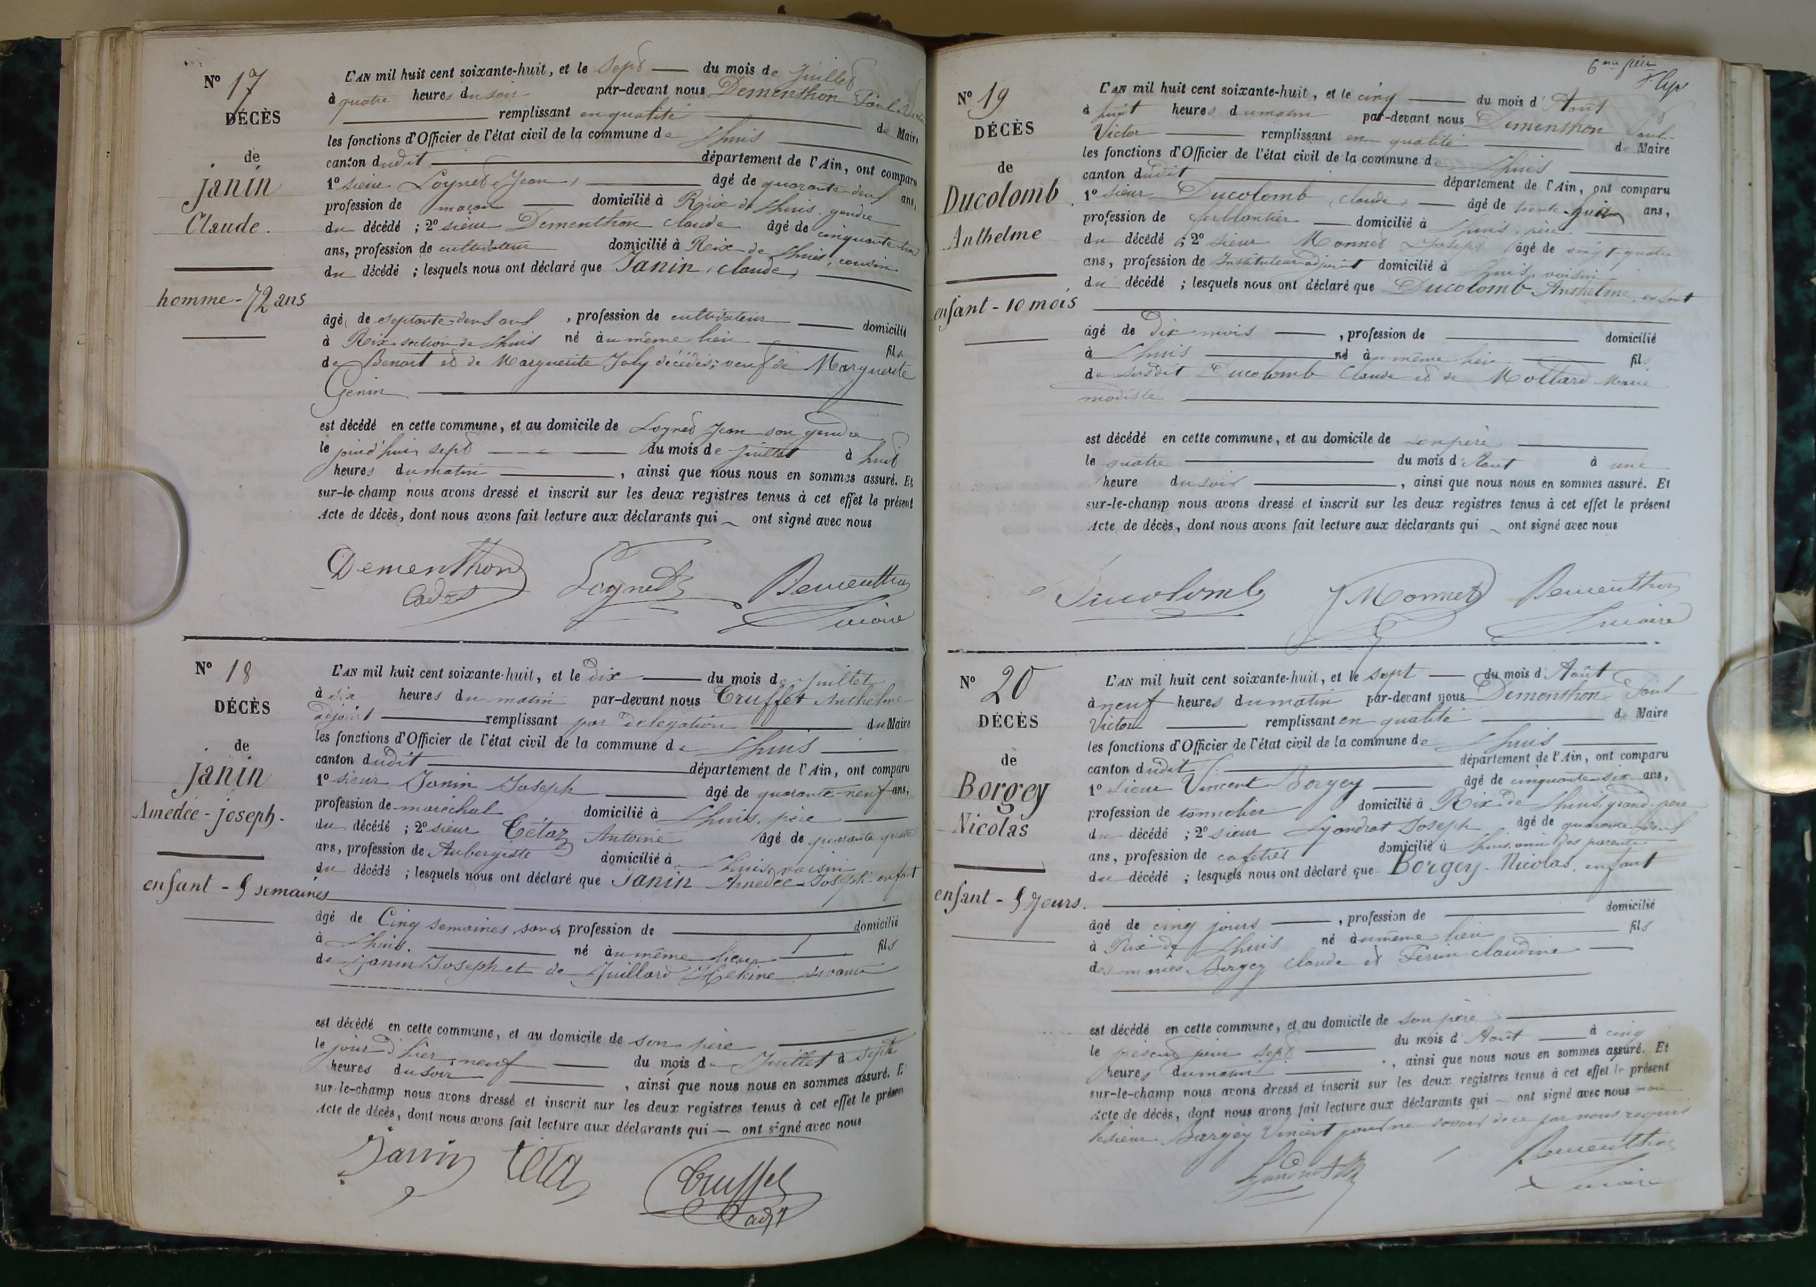 Nº 17
DÉCÈS
de
Janin
Claude.
homme - 72 ans
L'AN mil huit cent soixante-huit, et le Sept du mois de Juillet
à quatre heures du soir par-devant nous Dementhon Paul
remplissant en qualité de Maire
les fonctions d'Officier de l'état civil de la commune de Lhuis
canton dudit département de l'Ain, ont comparu
1º sieur Loynet Jean, âgé de quarante deux ans,
profession de maçon domicilié à Rix de Lhuis, gendre
du décédé ; 2º sieur Dementhon Claude âgé de cinquante
ans, profession de cultivateur domicilié à Rix de Lhuis, cousin
du décédé ; lesquels nous ont déclaré que Janin, Claude,
âgé de septante deux ans, profession de cultivateur domicilié
à Rix section de Lhuis né au même lieu fils
de Benoit et de Marguerite Joly décédés; veuf de Marguerite
Genin
est décédé en cette commune, et au domicile de Loynet Jean son gendre
le jourd'hui sept du mois de Juillet à huit
heures du matin, ainsi que nous nous en sommes assuré. Et
sur-le-champ nous avons dressé et inscrit sur les deux registres tenus à cet effet le présent
Acte de décès, dont nous avons fait lecture aux déclarants qui ont signé avec nous
Dementhon Loynet Dementhon
cadet maire
Nº 18
DÉCÈS
de
Janin
Amédée-joseph.
enfant - 5 semaines
L'AN mil huit cent soixante-huit, et le dix du mois de Juillet
à dix heures du matin par-devant nous Truffet Anthelme
adjoint remplissant par délégation du Maire
les fonctions d'Officier de l'état civil de la commune de Lhuis
canton dudit département de l'Ain, ont comparu
1º sieur Janin Joseph âgé de quarante neuf ans,
profession de maréchal domicilié à Lhuis, père
du décédé ; 2º sieur Tétaz Antoine âgé de quarante quatre
ans, profession de Aubergiste domicilié à Lhuis, voisin
du décédé ; lesquels nous ont déclaré que Janin Amédée-Joseph enfant
âgé de Cinq semaines sans profession de domicilié
à Lhuis. né au même lieu fils
de Janin Joseph et de Juillard
est décédé en cette commune, et au domicile de son père
le jour d'hier neuf du mois de Juillet à sept
heures du soir, ainsi que nous nous en sommes assuré. Et
sur-le-champ nous avons dressé et inscrit sur les deux registres tenus à cet effet le présent
Acte de décès, dont nous avons fait lecture aux déclarants qui — ont signé avec nous
Janin Téta Truffet
adjt
6me
Nº 19
DÉCÈS
de
Ducolomb
Anthelme
enfant - 10 mois
L'AN mil huit cent soixante-huit, et le cinq du mois d'Août
à huit heures du matin par-devant nous Dementhon Paul
Victor remplissant en qualité de Maire
les fonctions d'Officier de l'état civil de la commune de Lhuis
canton dudit département de l'Ain, ont comparu
1º sieur Ducolomb, Claude, âgé de trente-huit ans,
profession de ferblantier domicilié à Lhuis, père
du décédé ; 2º sieur Monnet Joseph âgé de vingt-quatre
ans, profession de Instituteur adjoint domicilié à Lhuis, voisin
du décédé ; lesquels nous ont déclaré que Ducolomb Anthelme, enfant
âgé de Dix mois, profession de domicilié
à Lhuis né au même lieu fils
de susdit Ducolomb Claude et de Mollard Marie
modiste
est décédé en cette commune, et au domicile de son père
le quatre du mois d'Août à une
heure du soir, ainsi que nous nous en sommes assuré. Et
sur-le-champ nous avons dressé et inscrit sur les deux registres tenus à cet effet le présent
Acte de décès, dont nous avons fait lecture aux déclarants qui ont signé avec nous
Ducolomb J Monnet Dementhon
maire
Nº 20
DÉCÈS
de
Borgey
Nicolas
enfant - 5 jours.
L'AN mil huit cent soixante-huit, et le sept du mois d'Août
à neuf heures du matin par-devant nous Dementhon Paul
Victor remplissant en qualité de Maire
les fonctions d'Officier de l'état civil de la commune de Lhuis
canton dudit département de l'Ain, ont comparu
1º sieur Vincent Borgey âgé de cinquante six ans,
profession de tonnelier domicilié à Rix de Lhuis, grand-père
du décédé ; 2º sieur Lyandrat Joseph âgé de quarante
ans, profession de cafetier domicilié à Lhuis, ami des parents
du décédé ; lesquels nous ont déclaré que Borgey Nicolas, enfant
âgé de cinq jours, profession de domicilié
à Rix de Lhuis né au même lieu fils
des mariés Borgey Claude et Claudine
est décédé en cette commune, et au domicile de son père
le présent jour sept du mois d'Août à cinq
heures du matin, ainsi que nous nous en sommes assuré. Et
sur-le-champ nous avons dressé et inscrit sur les deux registres tenus à cet effet le présent
Acte de décès, dont nous avons fait lecture aux déclarants qui — ont signé avec nous non
le sieur Borgey Vincent pour ne savoir de ce par nous requis
Dementhon
maire